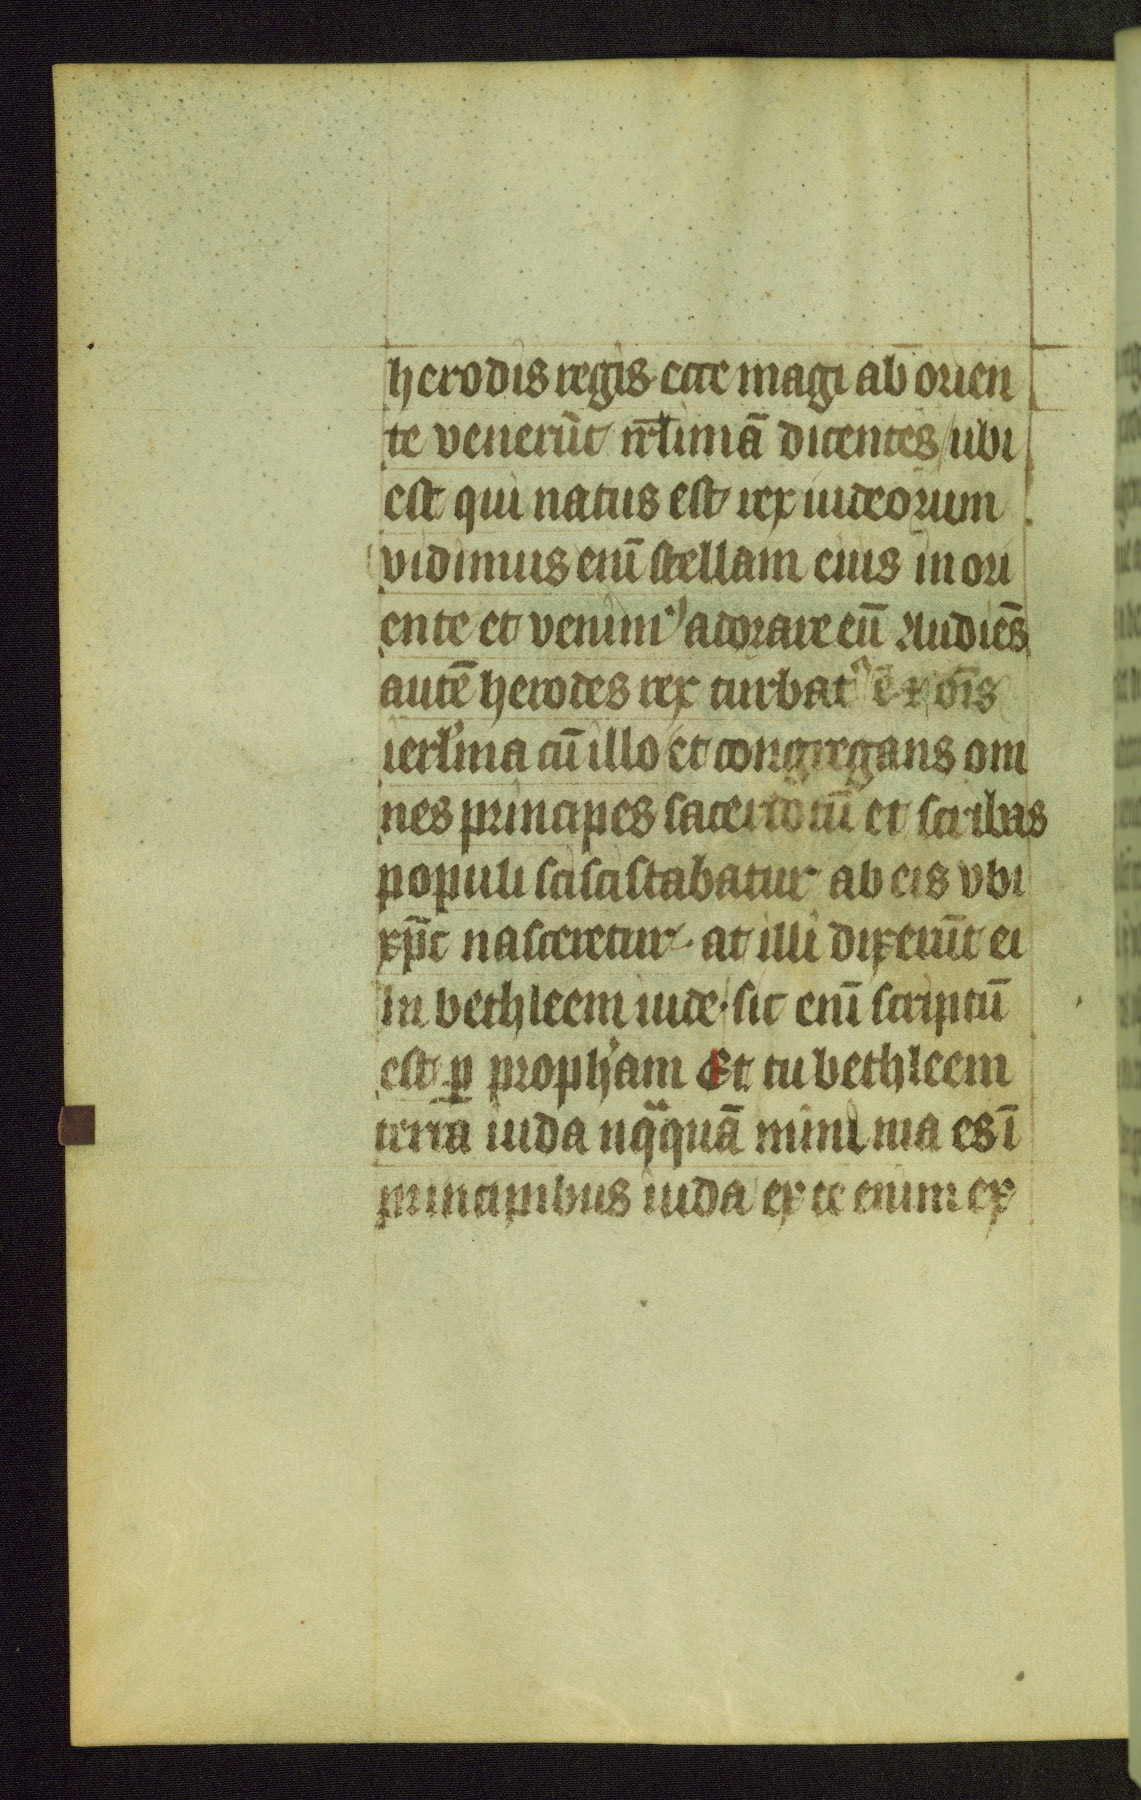 herodis regis ecce magi ab orien
te venerūt ir̄limā dicentes ubi
est qui natus est rex iudeorum
vidimus enī stellam eius in ori
ente et venimꝰ adorare eū Audiēs
autē herodes rex turbatꝰ ē ⁊ oīs
ierl'ima cū illo et congregans om
nes principes sacerdotū et scribas
populi sciscistabatur ab eis vbi
xp̄c nasceretur at illi dixerūt ei
in bethleem iude sic enī scriptū
est ꝑ proph'am Et tu bethleem
terra iuda nqͣquā minima es ī
principibus iuda ex te enim ex